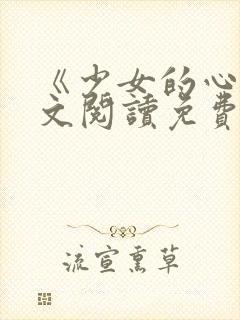 《少女的心
文閱讀免費
流宣熏草